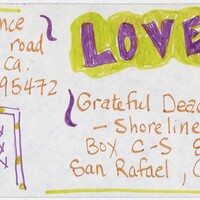 nce
road
Ca.
95472
LOVE
Grateful Dead
- Shoreline
Box C-S 8
San Rafael, C